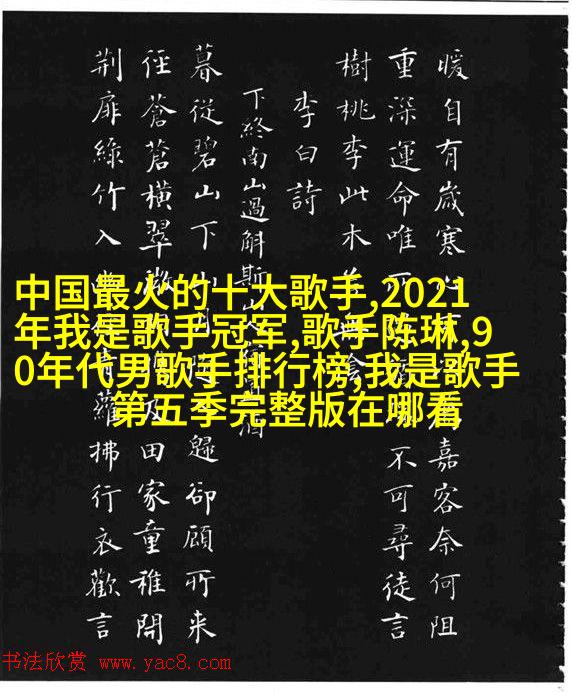 暖自有嵗寒心嘉客奈何阻
重深運命唯所不可尋徒言
樹桃李此木豈無陰
李白詩
下終南山過斛斯山酒
暮從碧山下山月歸卻顧所来
径蒼蒼橫翠微及田家童稚開
荆扉綠竹入青蘿拂行衣歡言
中国最火的十大歌手,2021
年我是歌手冠军,歌手陈琳,9
0年代男歌手排行榜,我是歌手
第五季完整版在哪看
书法欣赏 www.yac8.com